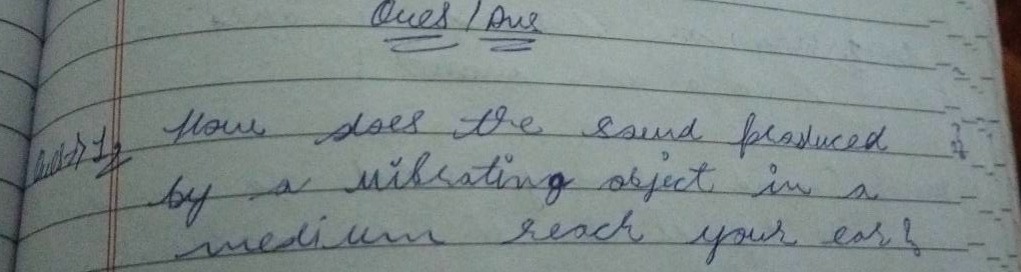 Ques / Ans
Ques → 1 How does the sound produced
by a vibrating object in a
medium reach your ear?